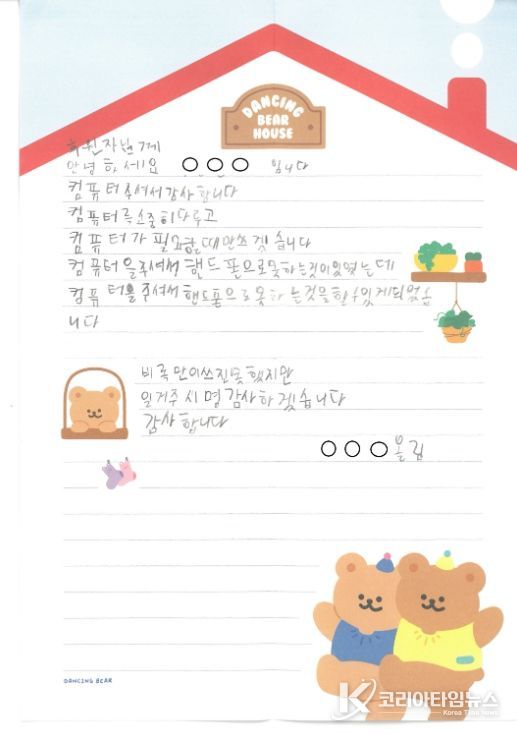 DANCING
BEAR
HOUSE
후원자님께
안녕하세요 ○○○ 입니다
컴퓨터 주셔서 감사합니다
컴퓨터를 소중히 다루고
컴퓨터가 필요할 때만 쓰겟습니다
컴퓨터을 주셔서 핸드폰으로 못하는것이 있었는데
컴퓨터를 주셔서 핸드폰으로 못하는것을 할 수 있게 되었습
니다
비록 만이 쓰진 못했지만
일거주시명 감사하겟습니다
감사합니다
○○○ 올림
DANCING BEAR
코리아타임뉴스
Korea Time News